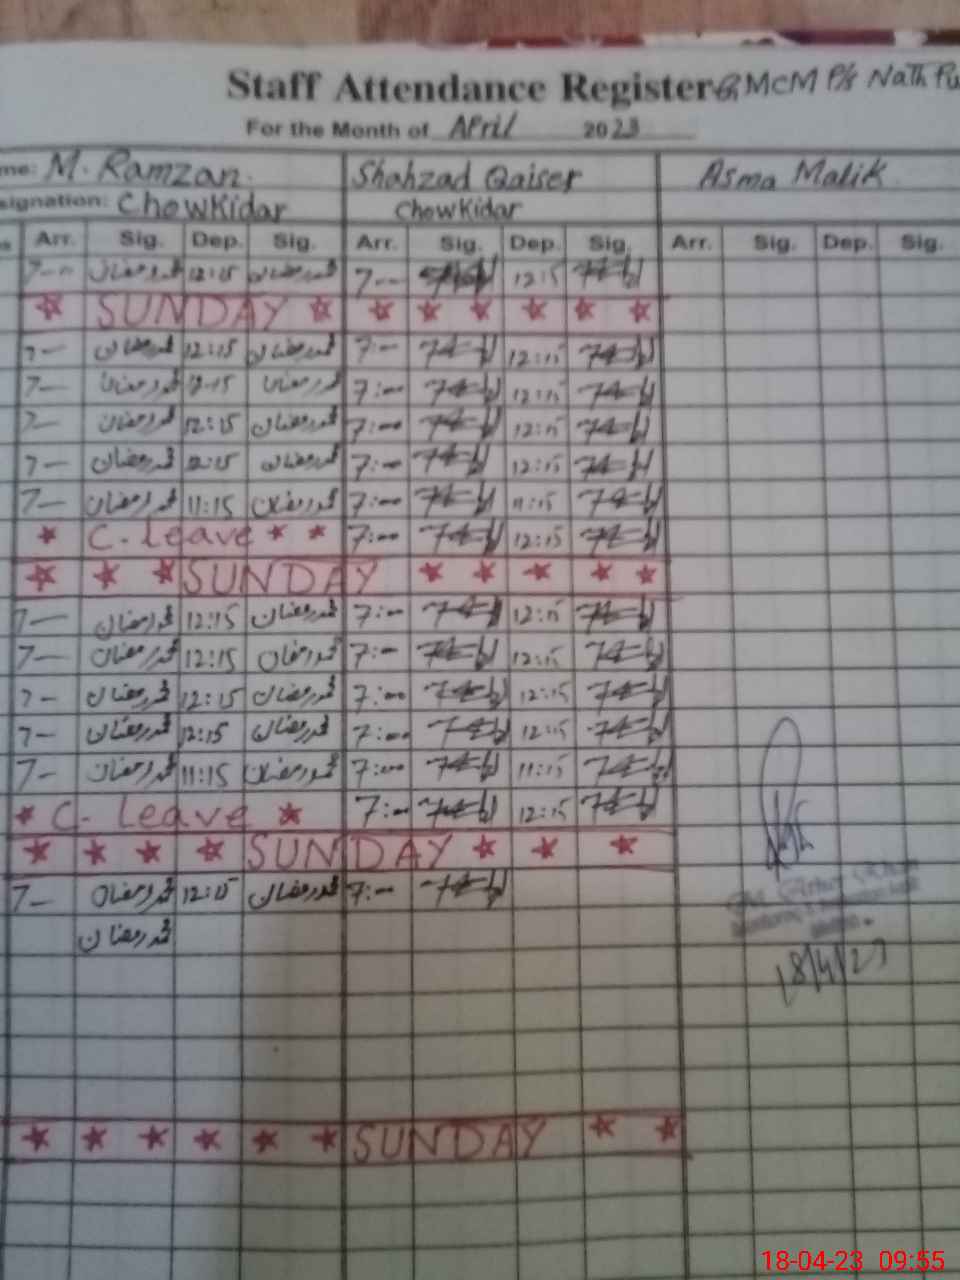 Staff Attendance Register GMCM P/s Nath Pu
For the Month of April 2023
me: M. Ramzan. Shahzad Qaiser Asma Malik
signation: Chowkidar Chowkidar
Arr. Sig. Dep. Sig. Arr. Sig. Dep. Sig. Arr. Sig. Dep. Sig.
7-- محمد رمضان 12:15 محمد رمضان 7-- 12:15
SUNDAY
7- محمد رمضان 12:15 محمد رمضان 7:- 12:15
7- محمد رمضان 12-15 محمد رمضان 7:00 12:15
7- محمد رمضان 12:15 محمد رمضان 7:00 12:15
7- محمد رمضان 12:15 محمد رمضان 7:00 12:15
7- محمد رمضان 11:15 محمد رمضان 7:00 11:15
C. Leave 7:00 12:15
SUNDAY
7- محمد رمضان 12:15 محمد رمضان 7:00 12:15
7- محمد رمضان 12:15 محمد رمضان 7:- 12:15
7- محمد رمضان 12:15 محمد رمضان 7:00 12:15
7- محمد رمضان 12:15 محمد رمضان 7:00 12:15
7- محمد رمضان 11:15 محمد رمضان 7:00 11:15
C. Leave 7:00 12:15
SUNDAY
7- محمد رمضان 12:15 محمد رمضان 7:-
محمد رمضان
18/4/23
SUNDAY
18-04-23 09:55